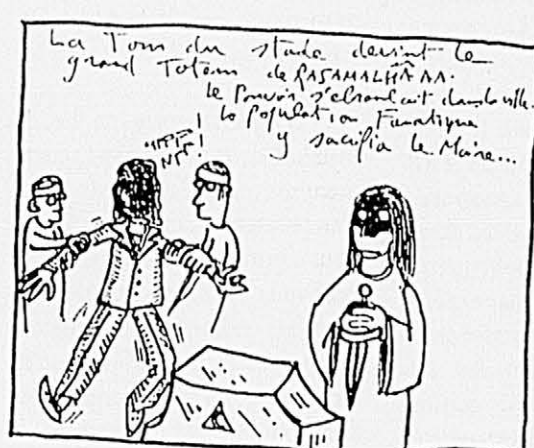 La Tour du stade devint le
grand Totem de RASAMALHÂAA.
le Pouvoir s'ébranlait dans la ville.
la population Fanatique
y sacrifia le Maire...